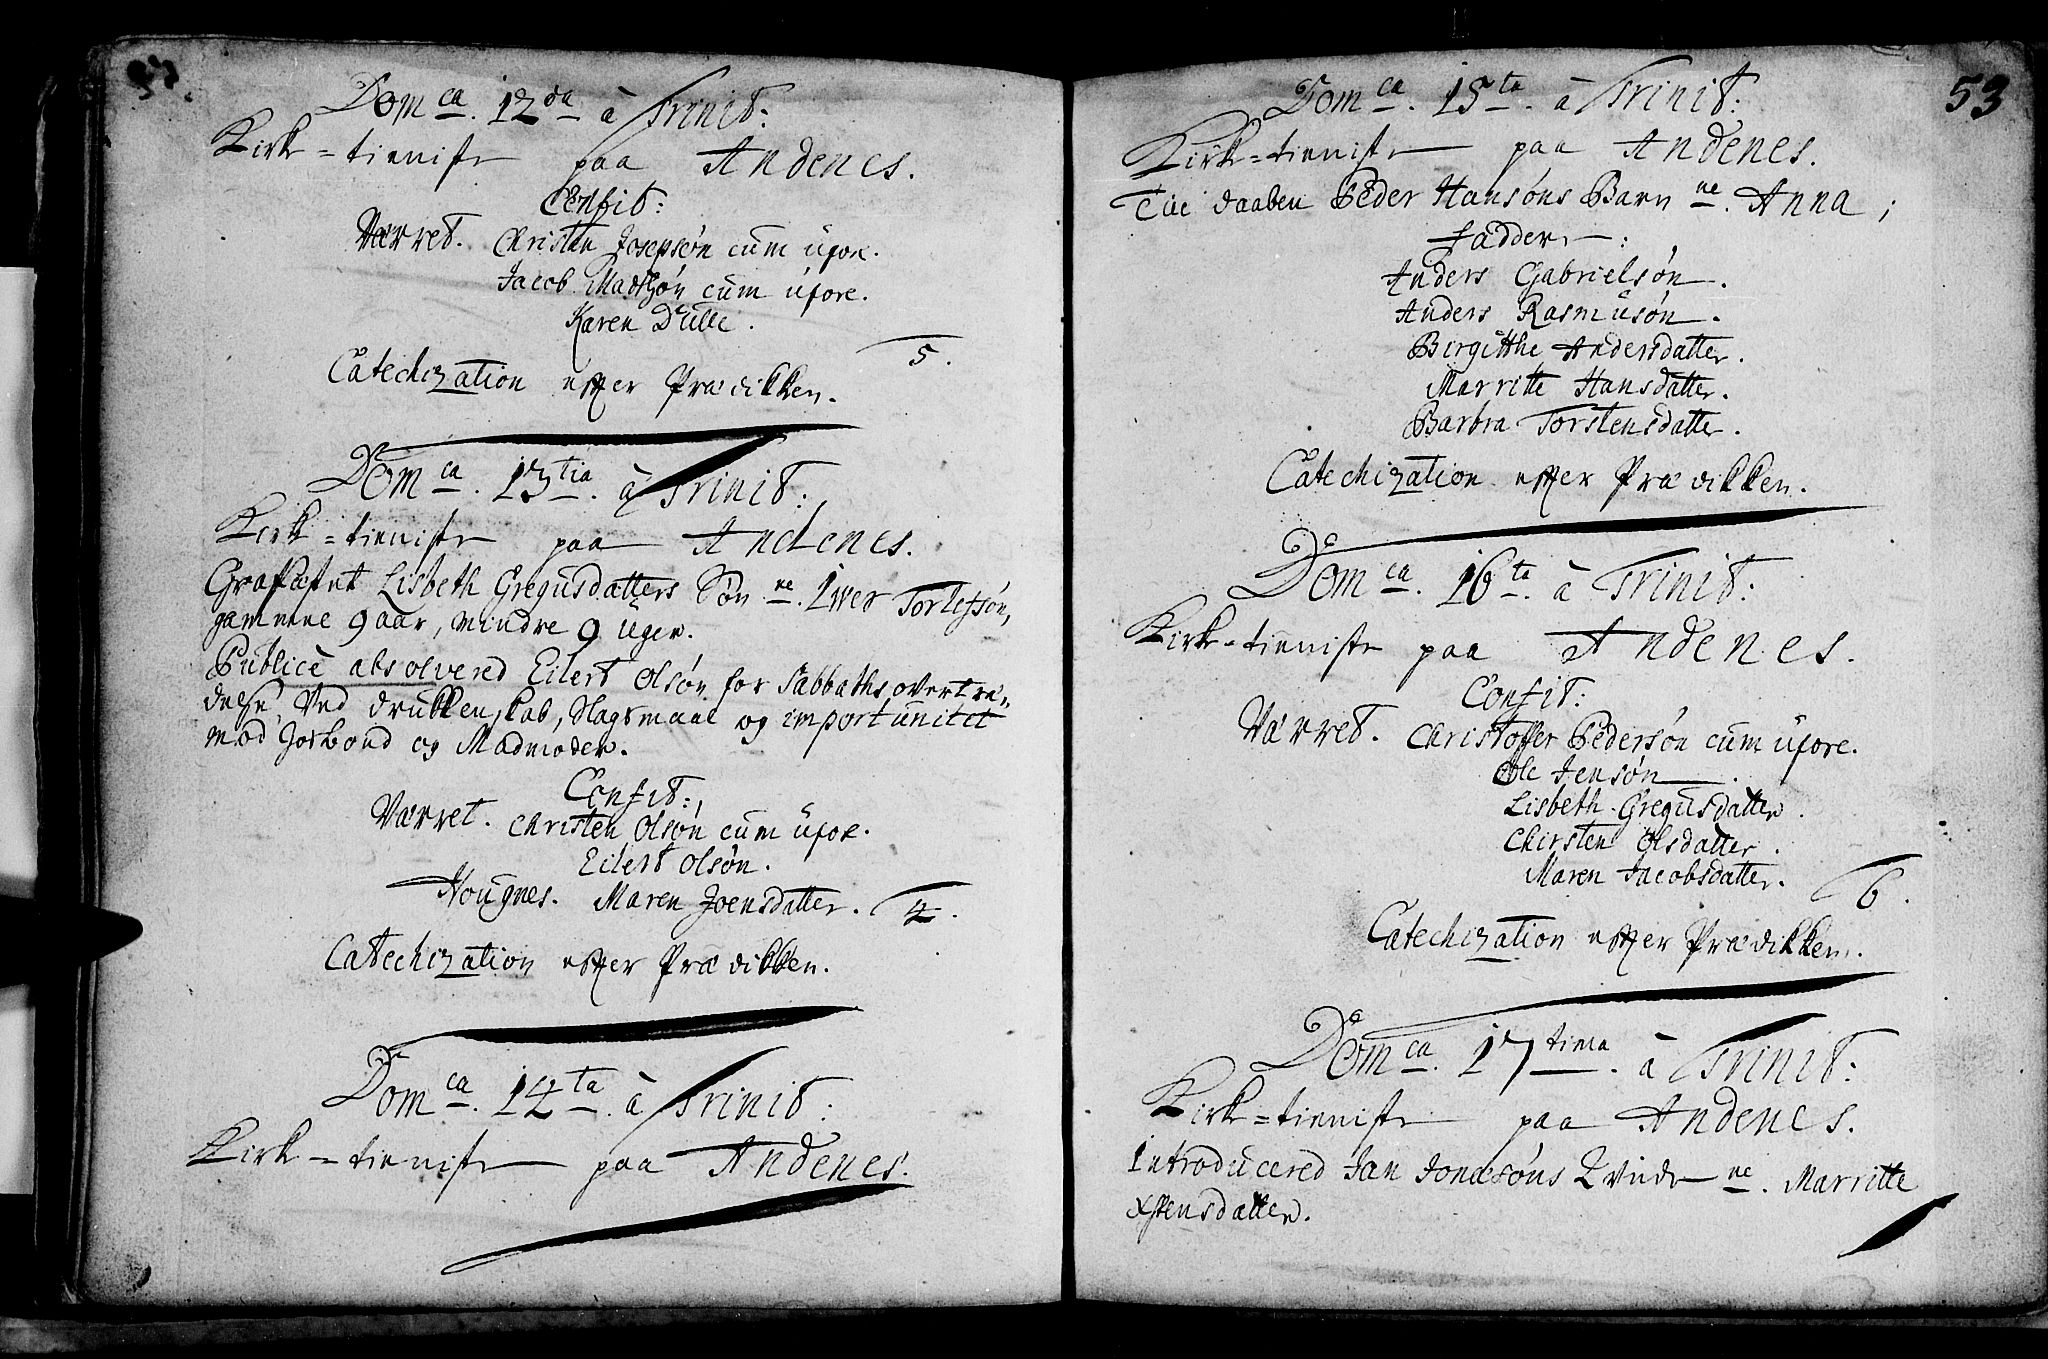 Dom ca. 12 da à Trinit:
Kirke=tieniste paa Andenes.
Confit:
Værret. Christen Josepsøn cum uxore.
Jacob Madssøn cum uxore.
Karen Dulle.
5.
Catechization efter Prædikken.
Dom ca. 13 tia. à Trinit:
Kirke=tieniste paa Andenes.
Grafæstet Lisbeth Gregusdatters Søn ne. Iver Torlefsøn,
gammene 9 aar, mindre 9 uger.
Publicè absolvered Eilert Olsøn for Sabbaths overtræ„
delse, Ved drukkenskab, slagsmaal og importunitet
mod Hosbond og Madmoder.
Confit:
Værret. Christen Olsøn cum uxore.
Eilert Olsøn.
Hougnes. Maren Joensdatter. 4.
Catechization efter Prædikken.
Dom ca. 14 ta. à Trinit:
Kirke=tieniste paa Andenes.
53
Dom ca. 15 ta. à Trinit:
Kirke=tieniste paa Andenes.
Til daaben Peder Hansøns Barn ne. Anna;
Faddere:
Anders Gabrielsøn.
Anders Rasmusøn.
Birgitthe Andersdatter.
Marritte Hansdatter.
Barbra Torstensdatter.
Catechization efter Prædikken.
Dom ca. 16 ta. à Trinit:
Kirke=tieniste paa Andenes.
Confit:
Værret. Christoffer Pedersøn cum uxore.
Ole Jensøn.
Lisbeth Gregusdatter.
Chirsten Olsdatter.
Maren Jacobsdatter. 6.
Catechization efter Prædikken.
Dom ca. 17 tima. à Trinit:
Kirke=tieniste paa Andenes.
Introducered Jan Jonæsøns Qvinde ne. Marritte
Østensdatter.